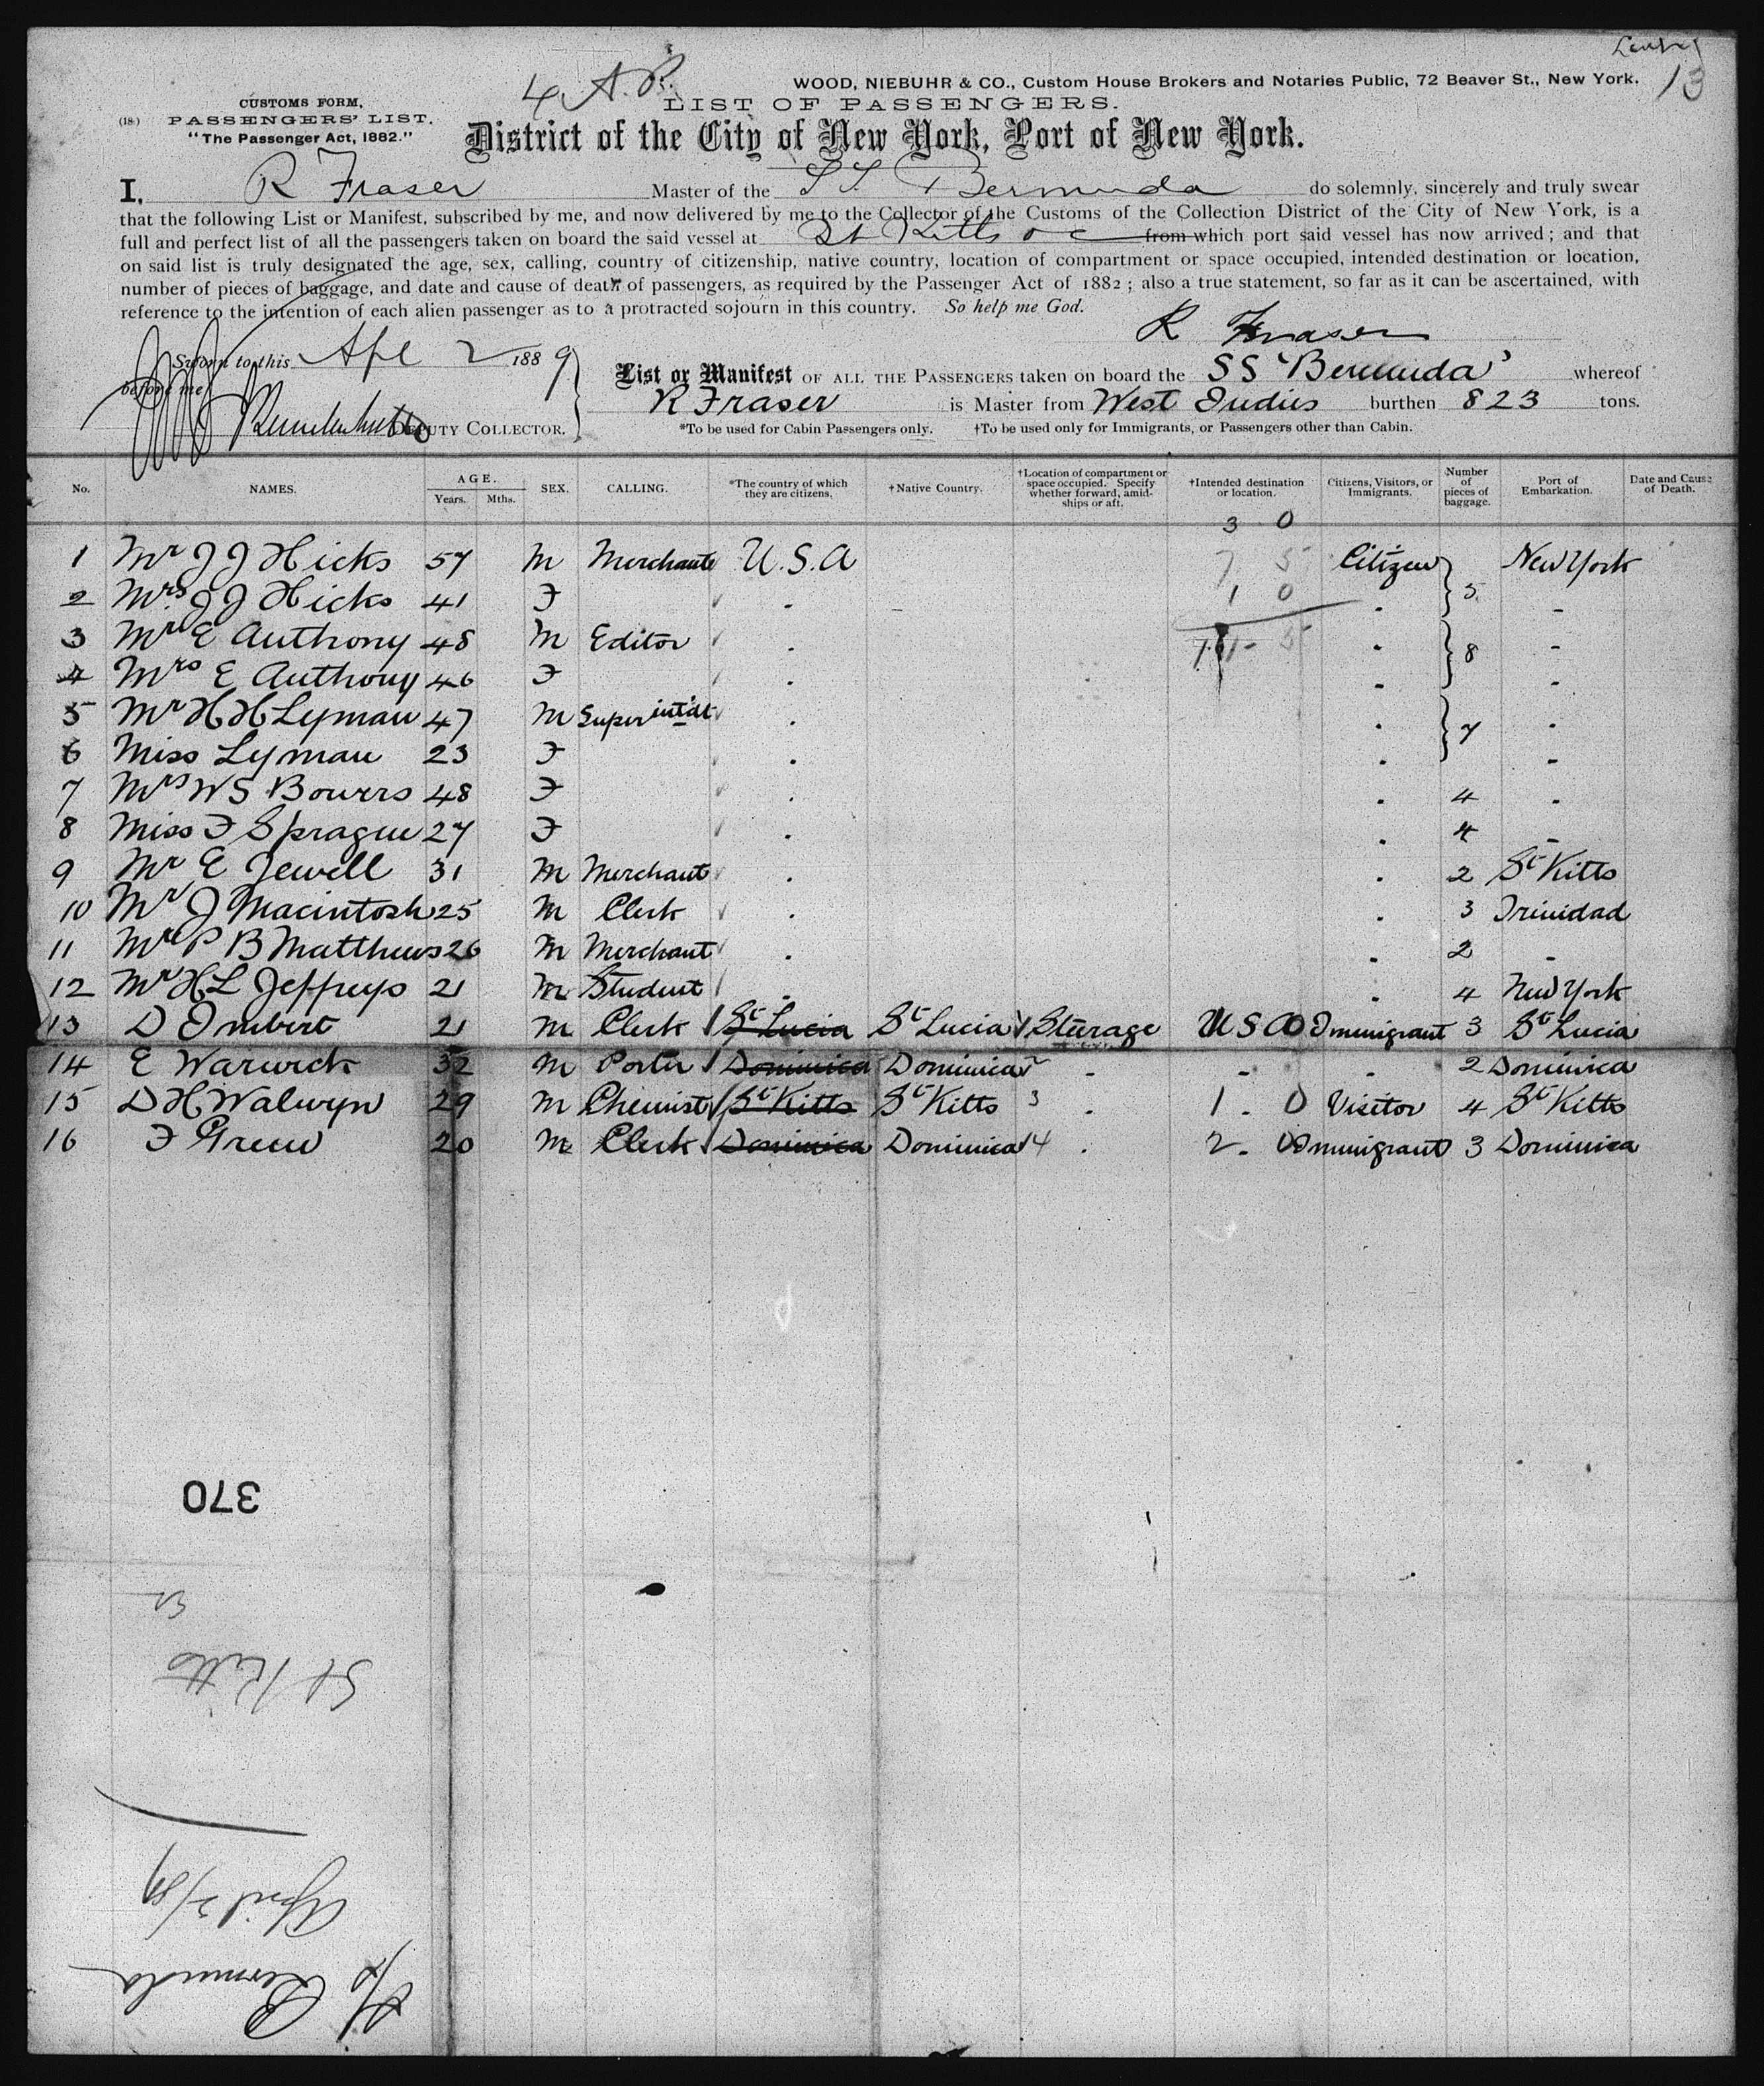 13
4 A. P.
WOOD, NIEBUHR & CO., Custom House Brokers and Notaries Public, 72 Beaver St., New York.
CUSTOMS FORM,
LIST OF PASSENGERS.
(18) PASSENGERS' LIST.
"The Passenger Act, 1882."
District of the City of New York, Port of New York.
I, R Fraser Master of the SS. Bermuda do solemnly, sincerely and truly swear
that the following List or Manifest, subscribed by me, and now delivered by me to the Collector of the Customs of the Collection District of the City of New York, is a
full and perfect list of all the passengers taken on board the said vessel at St Kitts from which port said vessel has now arrived; and that
on said list is truly designated the age, sex, calling, country of citizenship, native country, location of compartment or space occupied, intended destination or location,
number of pieces of baggage, and date and cause of death of passengers, as required by the Passenger Act of 1882; also a true statement, so far as it can be ascertained, with
reference to the intention of each alien passenger as to a protracted sojourn in this country. So help me God.
R Fraser
Sworn to this Apl 2 1889
before me
DEPUTY COLLECTOR.
List or Manifest OF ALL THE PASSENGERS taken on board the SS 'Bermuda' whereof
R Fraser is Master from West Indies burthen 823 tons.
*To be used for Cabin Passengers only. †To be used only for Immigrants, or Passengers other than Cabin.
No. NAMES. AGE. Years. Mths. SEX. CALLING. *The country of which they are citizens. †Native Country. †Location of compartment or space occupied. Specify whether forward, amidships or aft. †Intended destination or location. Citizens, Visitors, or Immigrants. Number of pieces of baggage. Port of Embarkation. Date and Cause of Death.
3 0
1 Mr J J Hicks 57 M Merchant U.S.A 7 5 Citizen New York
2 Mrs J J Hicks 41 F . 1 0 . 5 -
3 Mr E Anthony 48 M Editor . . 8 -
4 Mrs E Anthony 46 F . . -
5 Mr H H Lyman 47 M Superintdt . . 7 .
6 Miss Lyman 23 F . . -
7 Mrs W S Bowers 48 F . . 4 .
8 Miss F Sprague 27 F . . 4 -
9 Mr E Jewell 31 M Merchant . . 2 St Kitts
10 Mr J Macintosh 25 M Clerk . . 3 Trinidad
11 Mr P B Matthews 26 M Merchant . . 2 -
12 Mr H L Jeffreys 21 M Student . . 4 New York
13 D Imbert 21 M Clerk St Lucia St Lucia 1 Steerage U S A Immigrant 3 St Lucia
14 E Warwick 32 M Porter Dominica Dominica 2 . - . 2 Dominica
15 D H Walwyn 29 M Chemist St Kitts St Kitts 3 . 1 . 0 Visitor 4 St Kitts
16 F Green 20 M Clerk Dominica Dominica 4 . 2 . 0 Immigrant 3 Dominica
370
St Kitts
April 2/89
S/S Bermuda